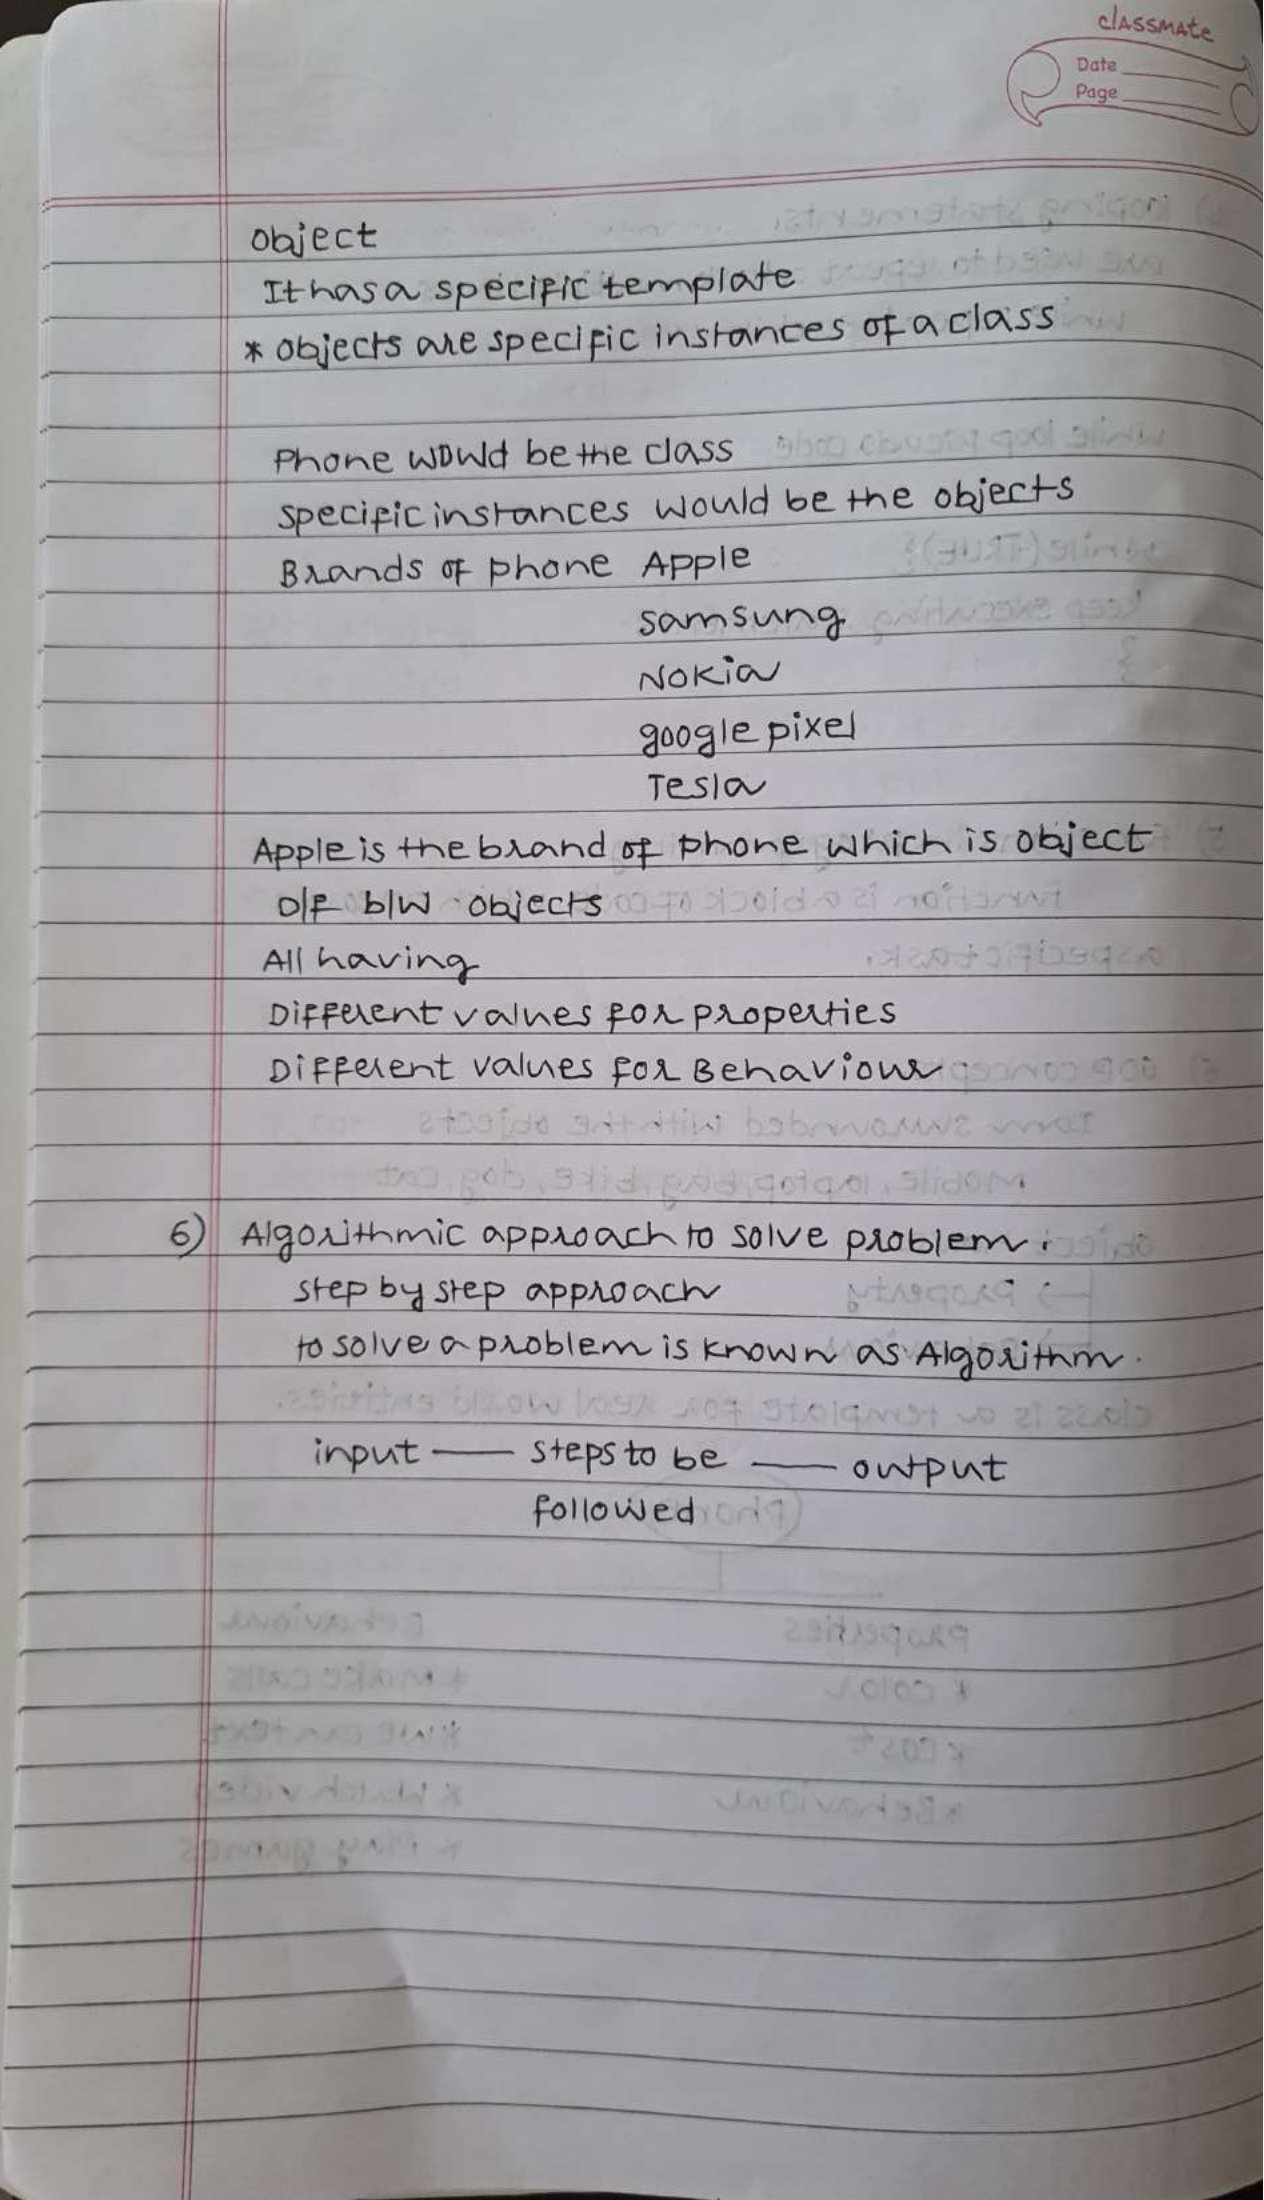 classmate
Date
Page
Object
It has a specific template
* Objects are specific instances of a class
Phone would be the class
specific instances would be the objects
Brands of phone Apple
samsung
Nokia
google pixel
Tesla
Apple is the brand of phone which is object
D/f b/w objects
All having
Different values for properties
Different values for Behaviour
6) Algorithmic approach to solve problem.
step by step approach
to solve a problem is known as Algorithm.
input —— steps to be —— output
followed